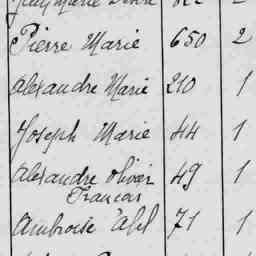 Pierre Marie 650 2
Alexandre Marie 210 1
Joseph Marie 44 1
Alexandre Olivier 49 1
Francois
Ambroise Abel 71 1